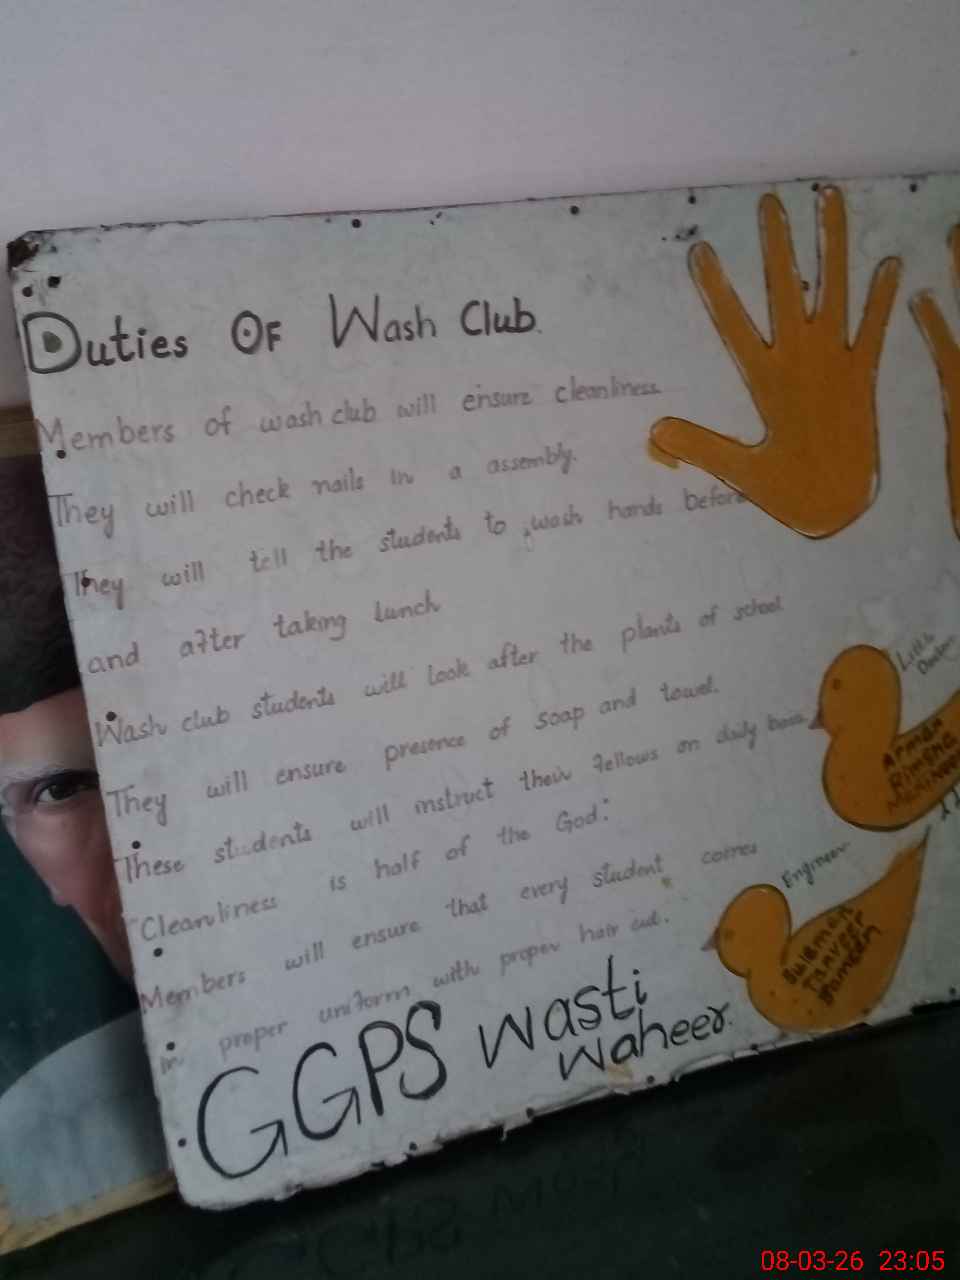 Duties OF Wash Club.
Members of wash club will ensure cleanliness.
They will check nails in a assembly.
They will tell the students to wash hands before
and after taking lunch
Wash club students will look after the plants of school
They will ensure presence of soap and towel.
These students will instruct their fellows on daily basis
"Cleanliness is half of the God."
Members will ensure that every student comes
in proper uniform with proper hair cut.
GGPS wasti
waheer.
Little
Arman
Engineer
Suleman
Tanveer
08-03-26 23:05